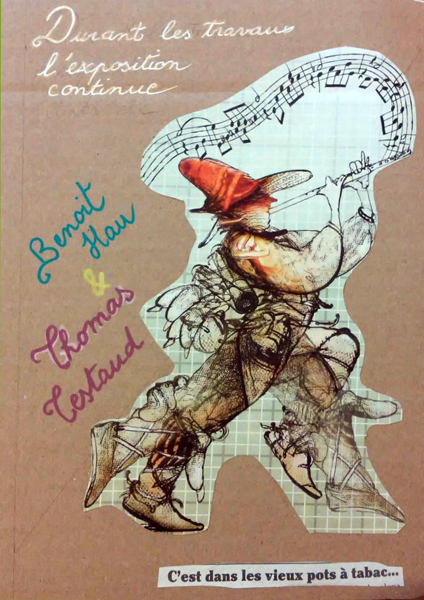 Durant les travaux
l'exposition
continue
Benoit
Hau
&
Thomas
Testaud
C'est dans les vieux pots à tabac...